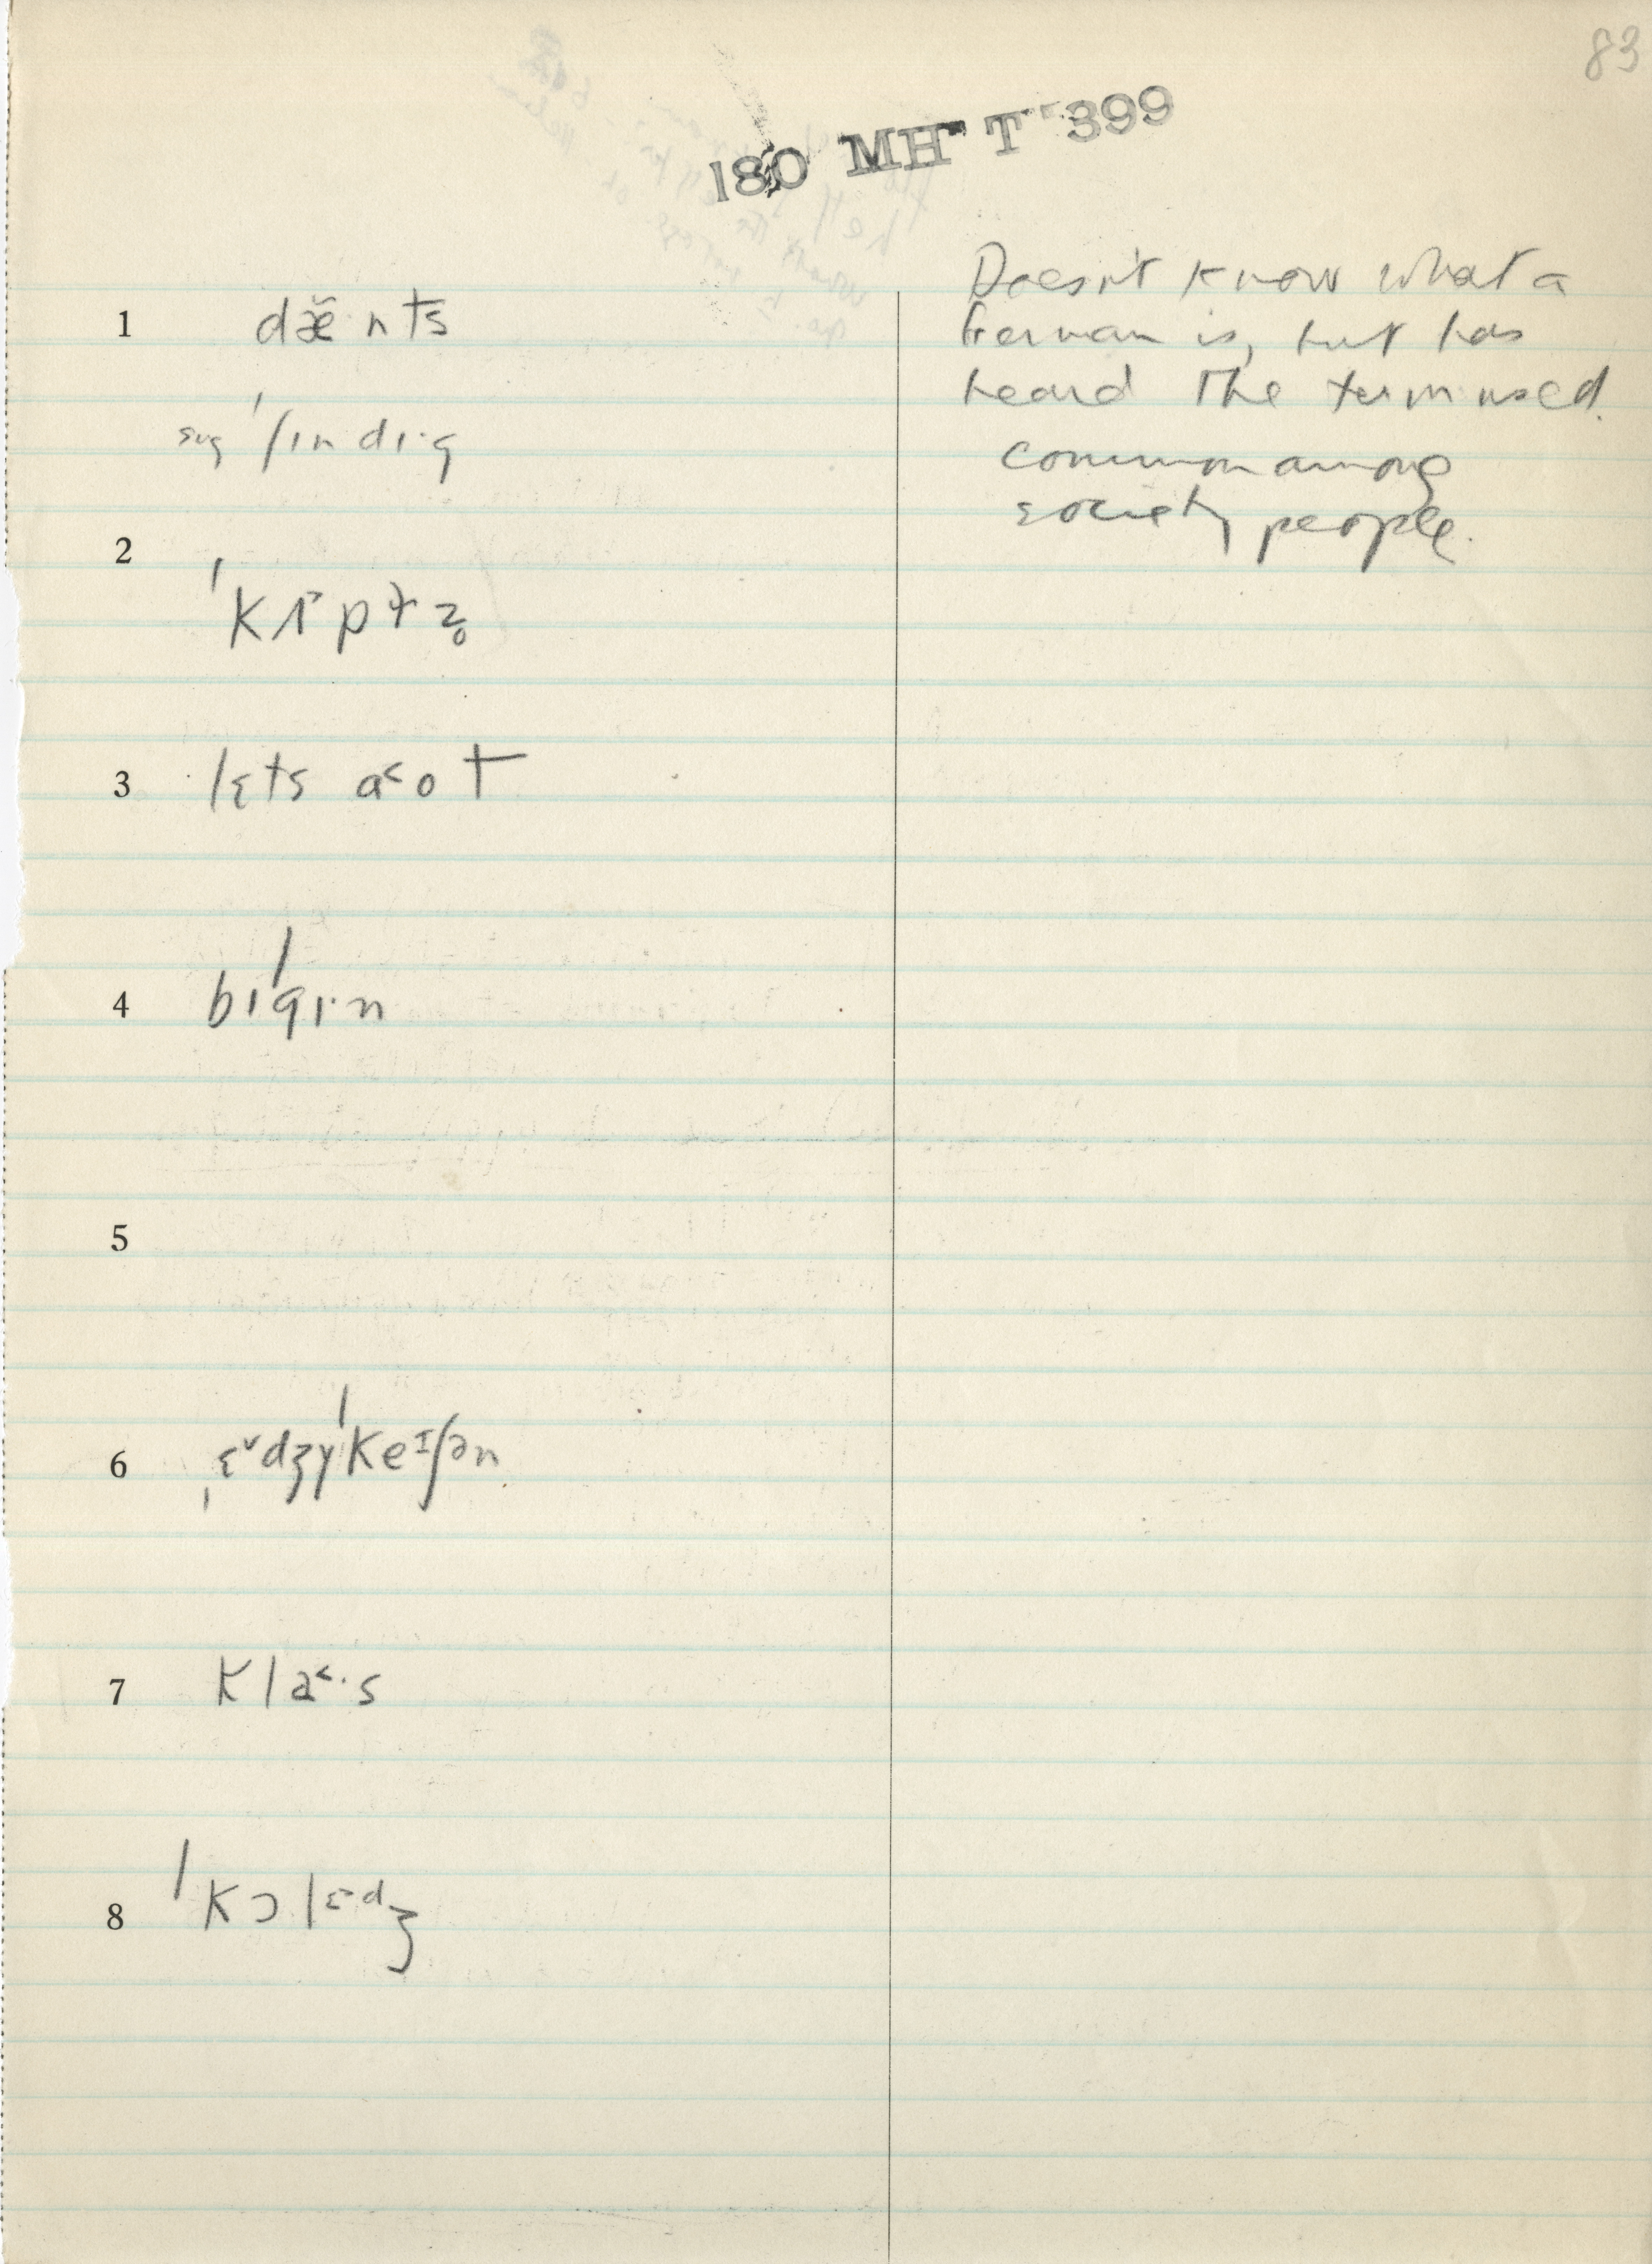 83
180 MH T 399
Doesn't know what a
German is, but has
heard the term used.
common among
society people.
1 dæ̃nts
sug ˈʃɪndɪ·g
2
ˈkɪpɫz̥
3 lɛts a˂ot
4 bɪˈgɪ·n
5
6 ˌɛ˅dʒɣˈkeɪʃən
7 kla˂·s
8 ˈkɔlɛdʒ